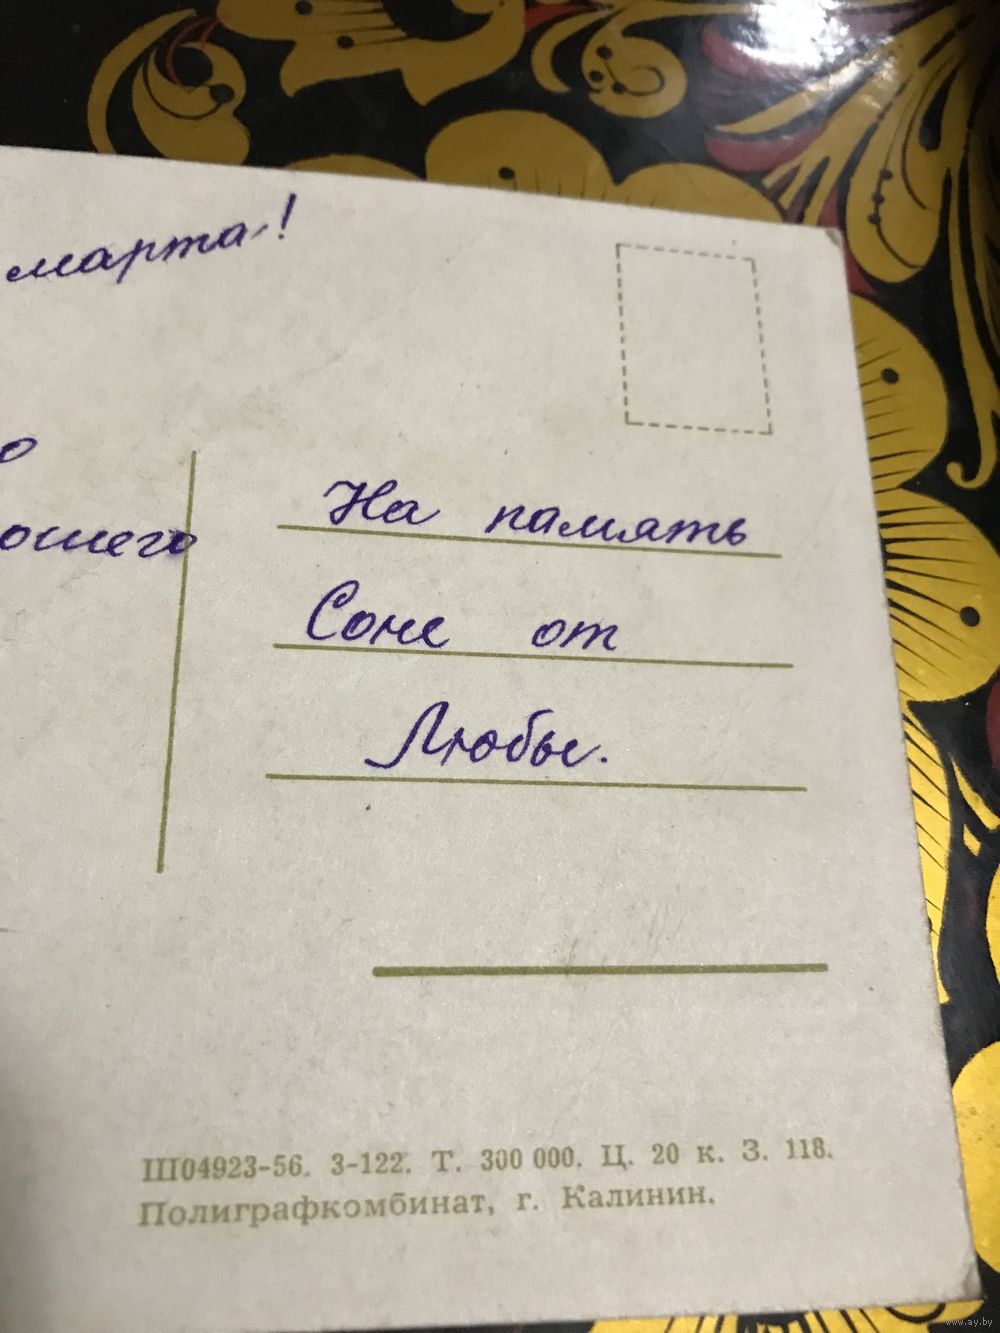 марта!
о
ошего
На память
Соне от
Любы.
Ш04923-56. 3-122. Т. 300 000. Ц. 20 к. З. 118.
Полиграфкомбинат, г. Калинин.
www.ay.by